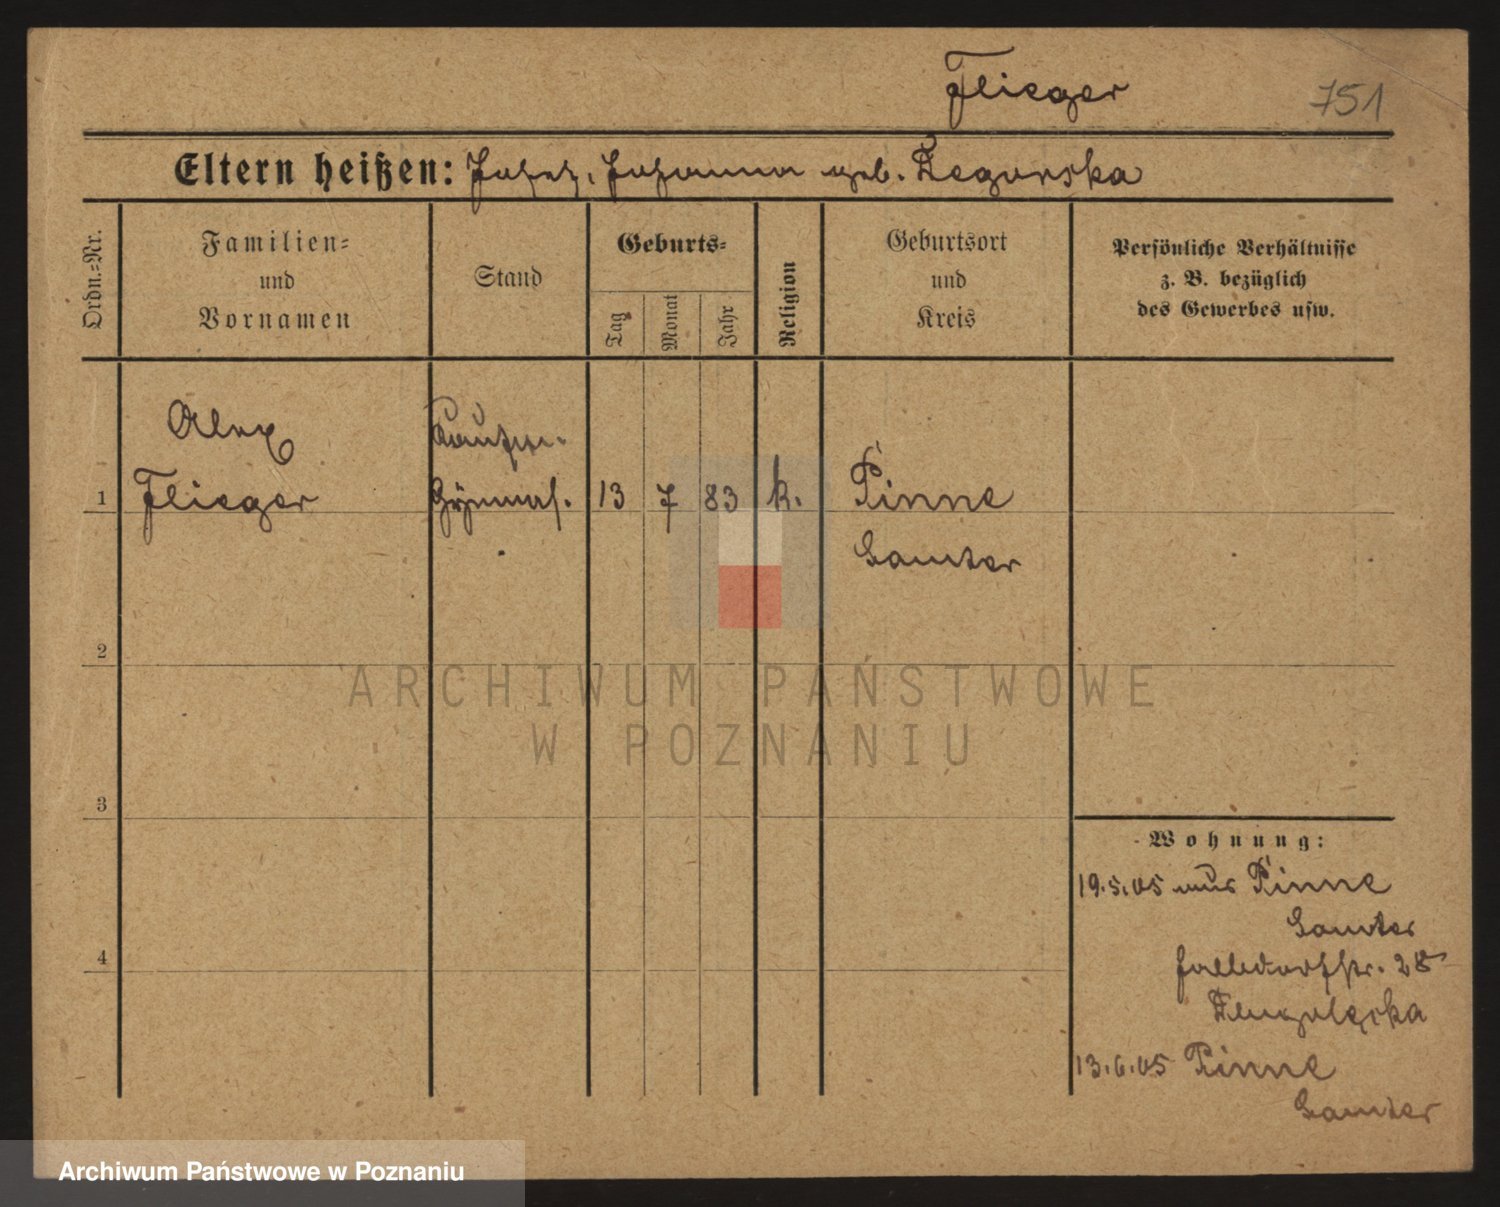 Flieger 751
Eltern heißen: Josef, Johanna geb. Zegorska
Ordn.=Nr.
Familien=
und
Vornamen
Stand
Geburts=
Tag
Monat
Jahr
Religion
Geburtsort
und
Kreis
Persönliche Verhältnisse
z. B. bezüglich
des Gewerbes usw.
Alex
1 Flieger Gymnas. 13 7 83 k. Pinne
Samter
2
ARCHIWUM PAŃSTWOWE
W POZNANIU
3
Wohnung:
19.5.05 aus Pinne
Samter
4
28
13.6.05 Pinne
Samter
Archiwum Państwowe w Poznaniu